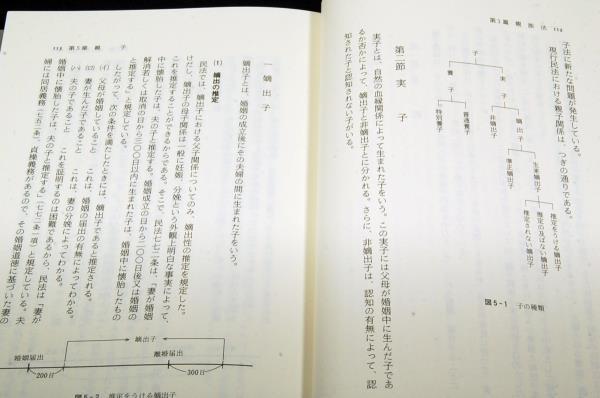 第5章 親族法 112
子法に新たな問題が発生している。
現行民法における親子関係は、つぎの通りである。
子
実子
養子
嫡出子
非嫡出子
普通養子
特別養子
生来嫡出子
準正嫡出子
推定をうける嫡出子
推定の及ばない嫡出子
推定されない嫡出子
図5-1 子の種類
第二節 実子
実子とは、自然の血縁関係によって生まれた子をいう。この実子には父母が婚姻中に生んだ子であ
るか否かによって、嫡出子と非嫡出子とに分かれる。さらに、非嫡出子は、認知の有無によって、認
知された子と認知されない子がいる。
113 第5章 親子
一 嫡出子
嫡出子とは、婚姻の成立後にその夫婦の間に生まれた子をいう。
(1) 嫡出の推定
民法では、嫡出子における父子関係についてのみ、嫡出性の推定を規定した。
けだし、嫡出子の母子関係は一般に妊娠、分娩という外観上明白な事実によって、
これを推定することができるからである。そこで、民法七七二条は、「妻が婚姻
中に懐胎した子は、夫の子と推定する。婚姻成立の日から二〇〇日後又は婚姻の
解消若しくは取消の日から三〇〇日以内に生まれた子は、婚姻中に懐胎したもの
と推定する」と規定している。
したがって、次の条件を満たしたときには、嫡出子であると推定される。
(イ) 父母が婚姻していること これは、婚姻の届出の有無によってわかる。
(ロ) 妻が生んだ子であること これは、妻の分娩によってわかる。
(ハ) 夫の子であること これを証明するのは困難であるから、民法は「妻が
婚姻中に懐胎した子は、夫の子と推定する」(七七二条一項)と規定している。夫
婦には同居義務(七五二条)、貞操義務があるので、その婚姻道徳に基づいた妻の
嫡出子
婚姻届出
離婚届出
200日
300日
図5-2 推定をうける嫡出子